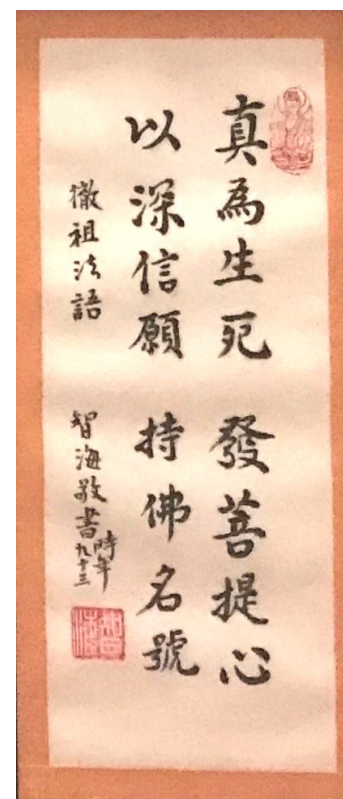 真為生死 發菩提心
以深信願 持佛名號
徹祖法語
智海敬書時年九十三
智海